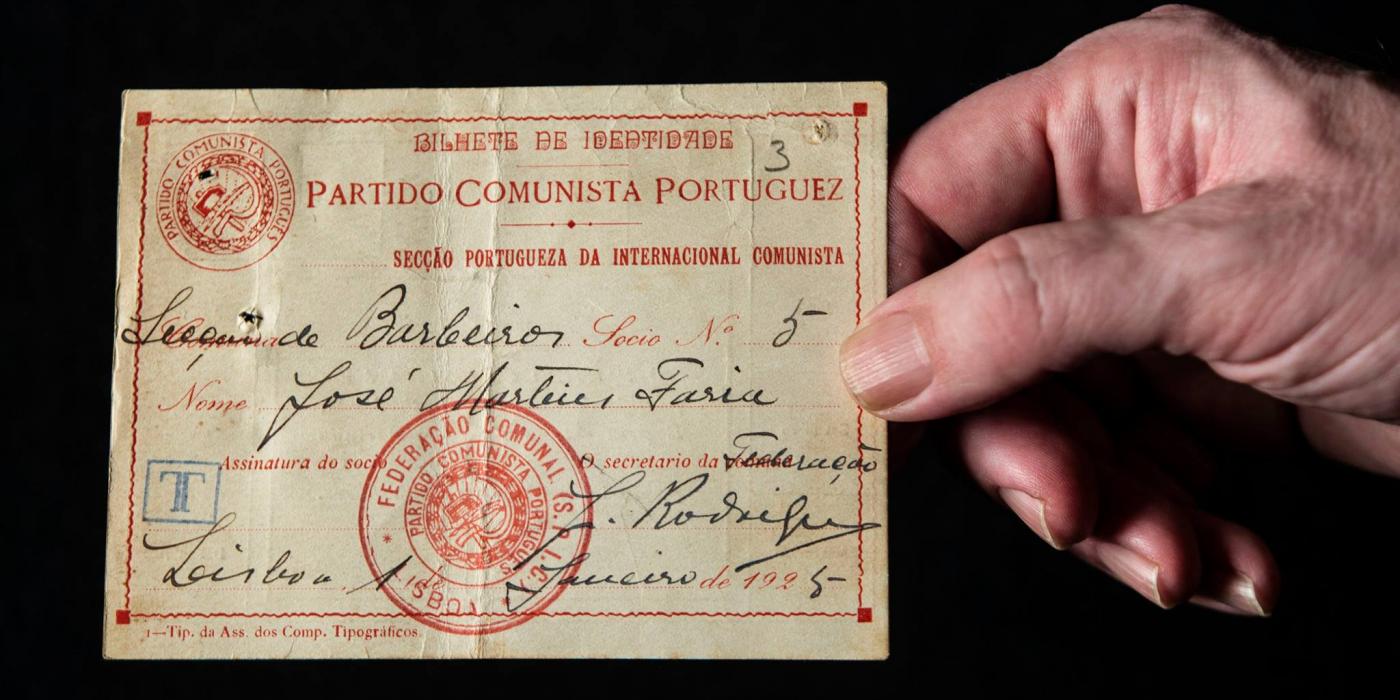 BILHETE DE IDENTIDADE
3
PARTIDO COMUNISTA PORTUGUÊS
PARTIDO COMUNISTA PORTUGUEZ
SECÇÃO PORTUGUEZA DA INTERNACIONAL COMUNISTA
Secção de Barbeiros Socio N.º 5
Nome José Martins Faria
Assinatura do socio O secretario da Federação
T
FEDERAÇÃO COMUNAL (S.P.I.C.)
PARTIDO COMUNISTA PORTUGUÊS
LISBOA
Rodrigues
Lisboa, 1 de Janeiro de 1925
1—Tip. da Ass. dos Comp. Tipográficos.